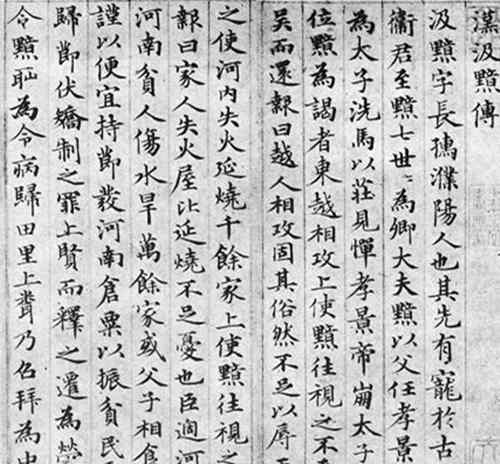 漢汲黯傳
汲黯字長孺濮陽人也其先有寵於古
衛君至黯七世〻為卿大夫黯以父任孝景
為太子洗馬以莊見憚孝景帝崩太子
位黯為謁者東越相攻上使黯往視之不
吳而還報曰越人相攻固其俗然不足以辱
之使河內失火延燒千餘家上使黯往視之
報曰家人失火屋比延燒不足憂也臣過河
河南貧人傷水旱萬餘家或父子相食
謹以便宜持節發河南倉粟以振貧民
歸節伏矯制之罪上賢而釋之遷為滎
令黯恥為令病歸田里上聞乃召拜為中